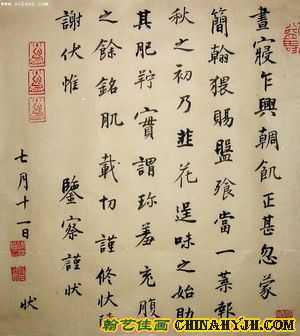 晝寢乍興輖飢正甚忽蒙
簡翰猥賜盤飧當一葉報
秋之初乃韭花逞味之始助
其肥羜實謂珍羞充腹
之餘銘肌載切謹修狀陳
謝伏惟
鑒察謹狀
七月十一日
狀
翰艺佳画
CHINAHYJH.COM